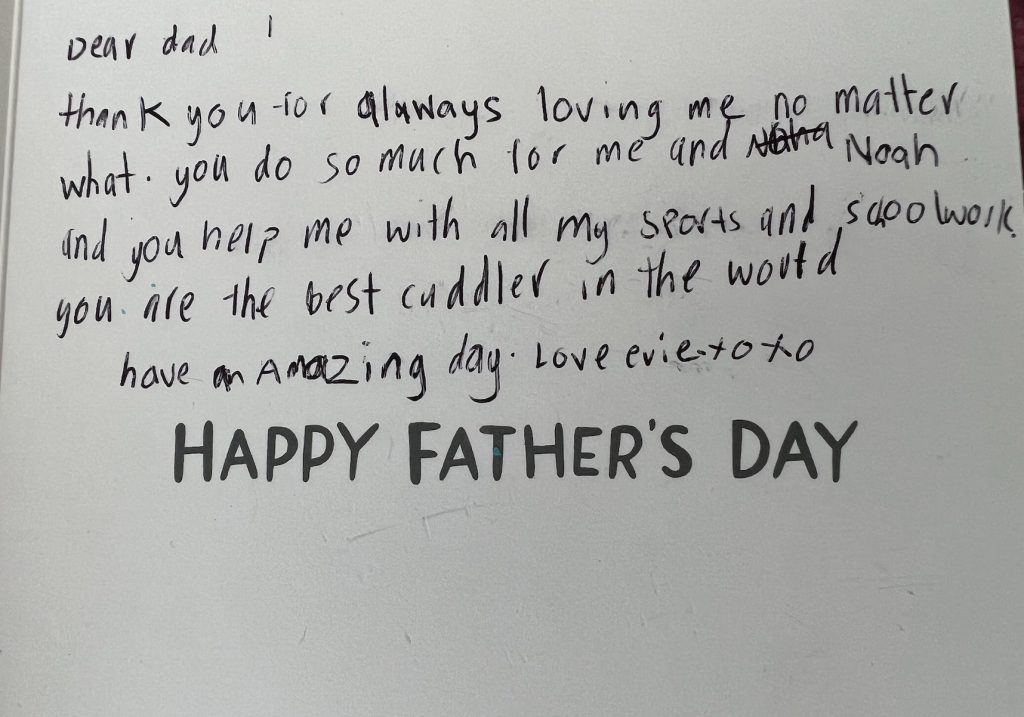 Dear dad
thank you for alaways loving me no matter
what. you do so much for me and Noah
and you help me with all my sports and scoolwork.
you are the best cuddler in the world
have an Amazing day. Love evie xoxo
HAPPY FATHER'S DAY